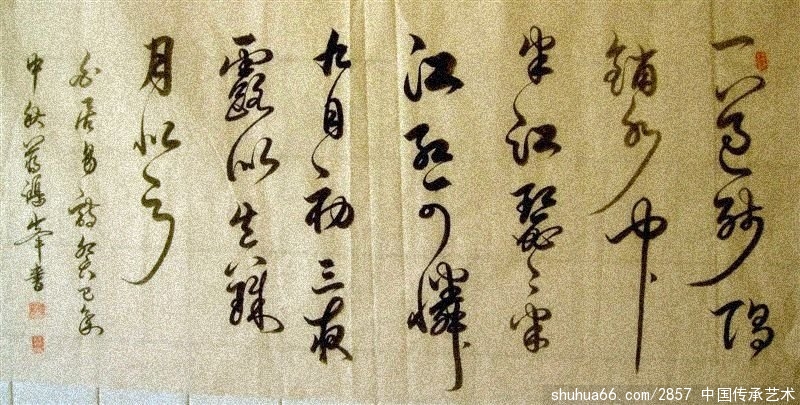 一道残陽
鋪水中
半江瑟々半
江紅可憐
九月初三夜
露似真珠
月似弓
白居易詩癸巳年
中秋書
shuhua66.com/2857 中国传承艺术